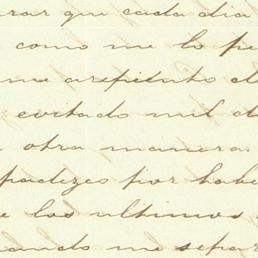 rar que cada dia
como me lo pe
me arepiento d
evitado mil d
otra manera
padezes por habe
e los ultimos
uando me separ